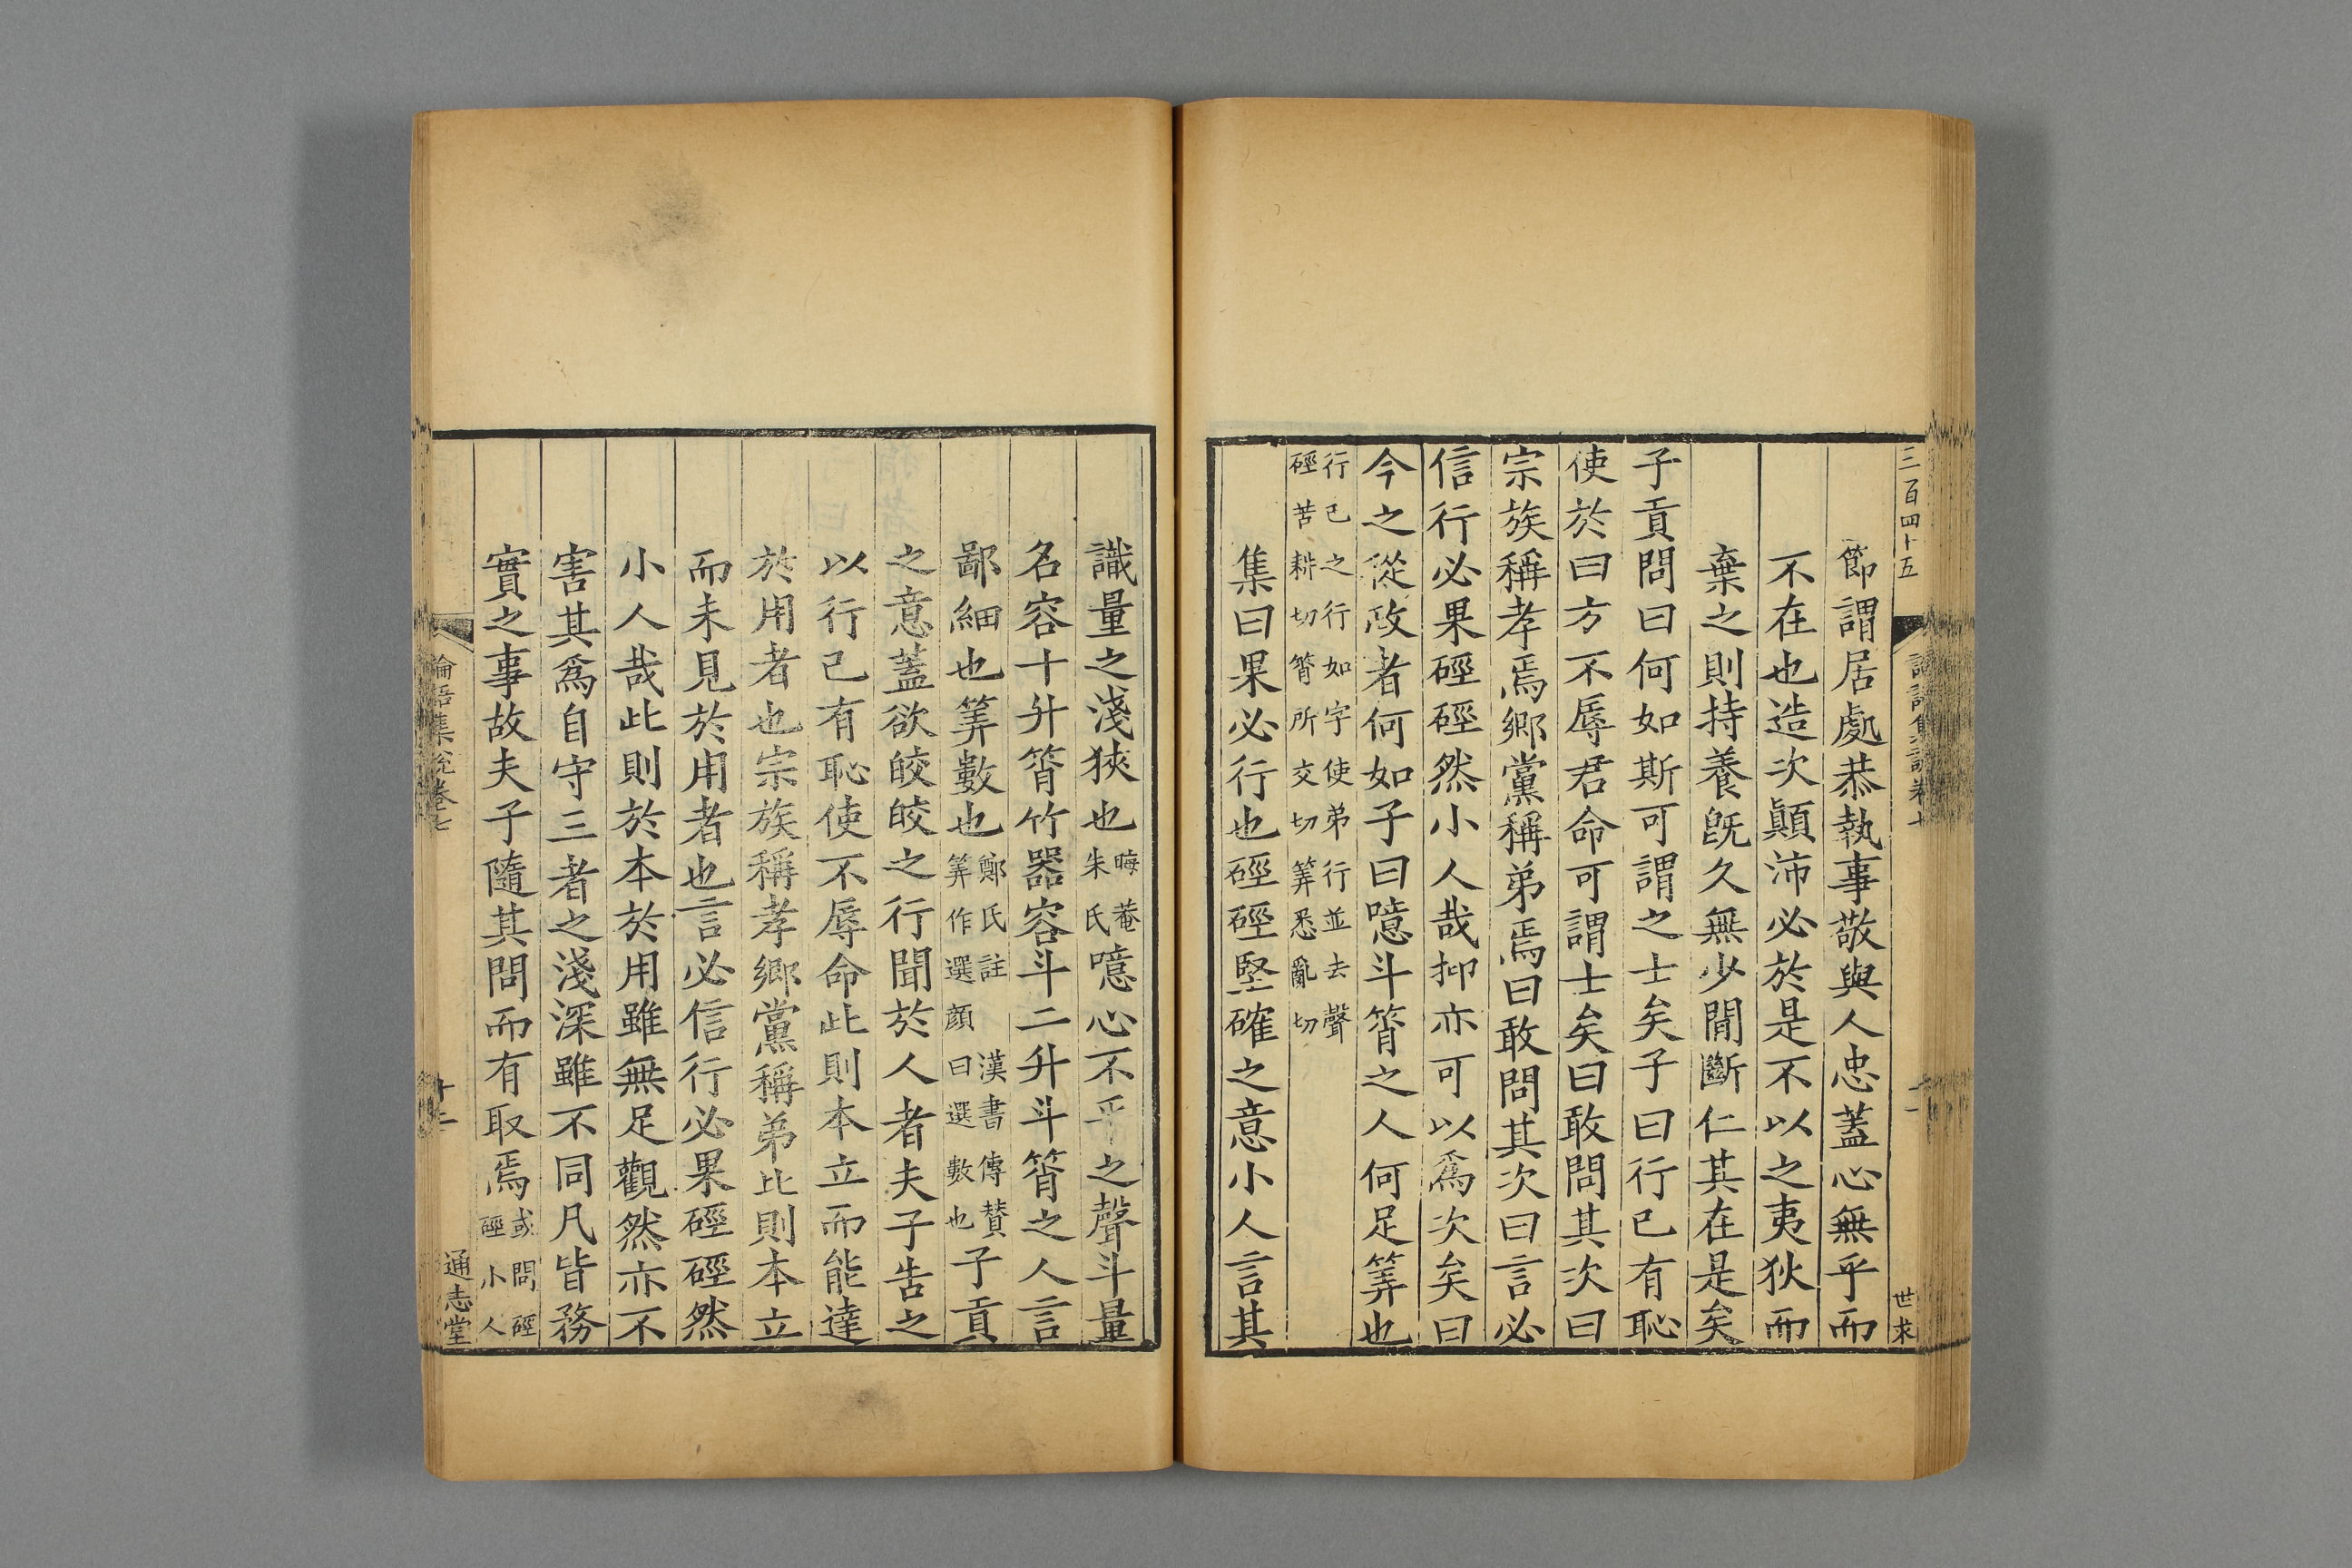 三百四十五
世求
節謂居處恭執事敬與人忠蓋心無乎而
不在也造次顚沛必於是不以之夷狄而
棄之則持養旣久無少閒斷仁其在是矣
子貢問曰何如斯可謂之士矣子曰行已有恥
使於曰方不辱君命可謂士矣曰敢問其次曰
宗族稱孝焉鄉黨稱弟焉曰敢問其次曰言必
信行必果硜硜然小人哉抑亦可以爲次矣曰
今之從政者何如子曰噫斗筲之人何足筭也
行己之行如字使弟行並去聲
硜苦耕切筲所交切筭悉亂切
集曰果必行也硜硜堅確之意小人言其
識量之淺狹也晦菴朱氏噫心不平之聲斗量
名容十升筲竹器容斗二升斗筲之人言
鄙細也筭數也鄭氏註筭作選顔漢書傳贊曰選數也子貢
之意蓋欲皎皎之行聞於人者夫子告之
以行己有恥使不辱命此則本立而能達
於用者也宗族稱孝鄉黨稱弟此則本立
而未見於用者也言必信行必果硜硜然
小人哉此則於本於用雖無足觀然亦不
害其爲自守三者之淺深雖不同凡皆務
實之事故夫子隨其問而有取焉或問硜硜小人
論語集說卷七
十二
通志堂